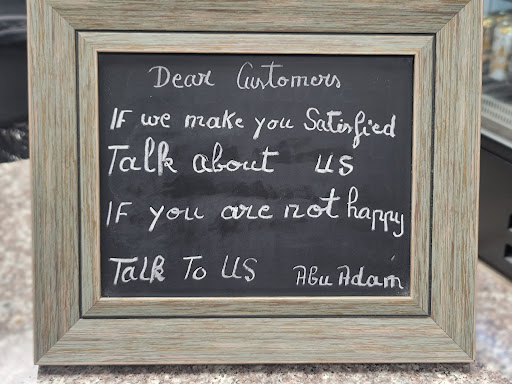 Dear Customers
IF we make you Satisfied
Talk about us
IF you are not happy
Talk To US Abu Adam